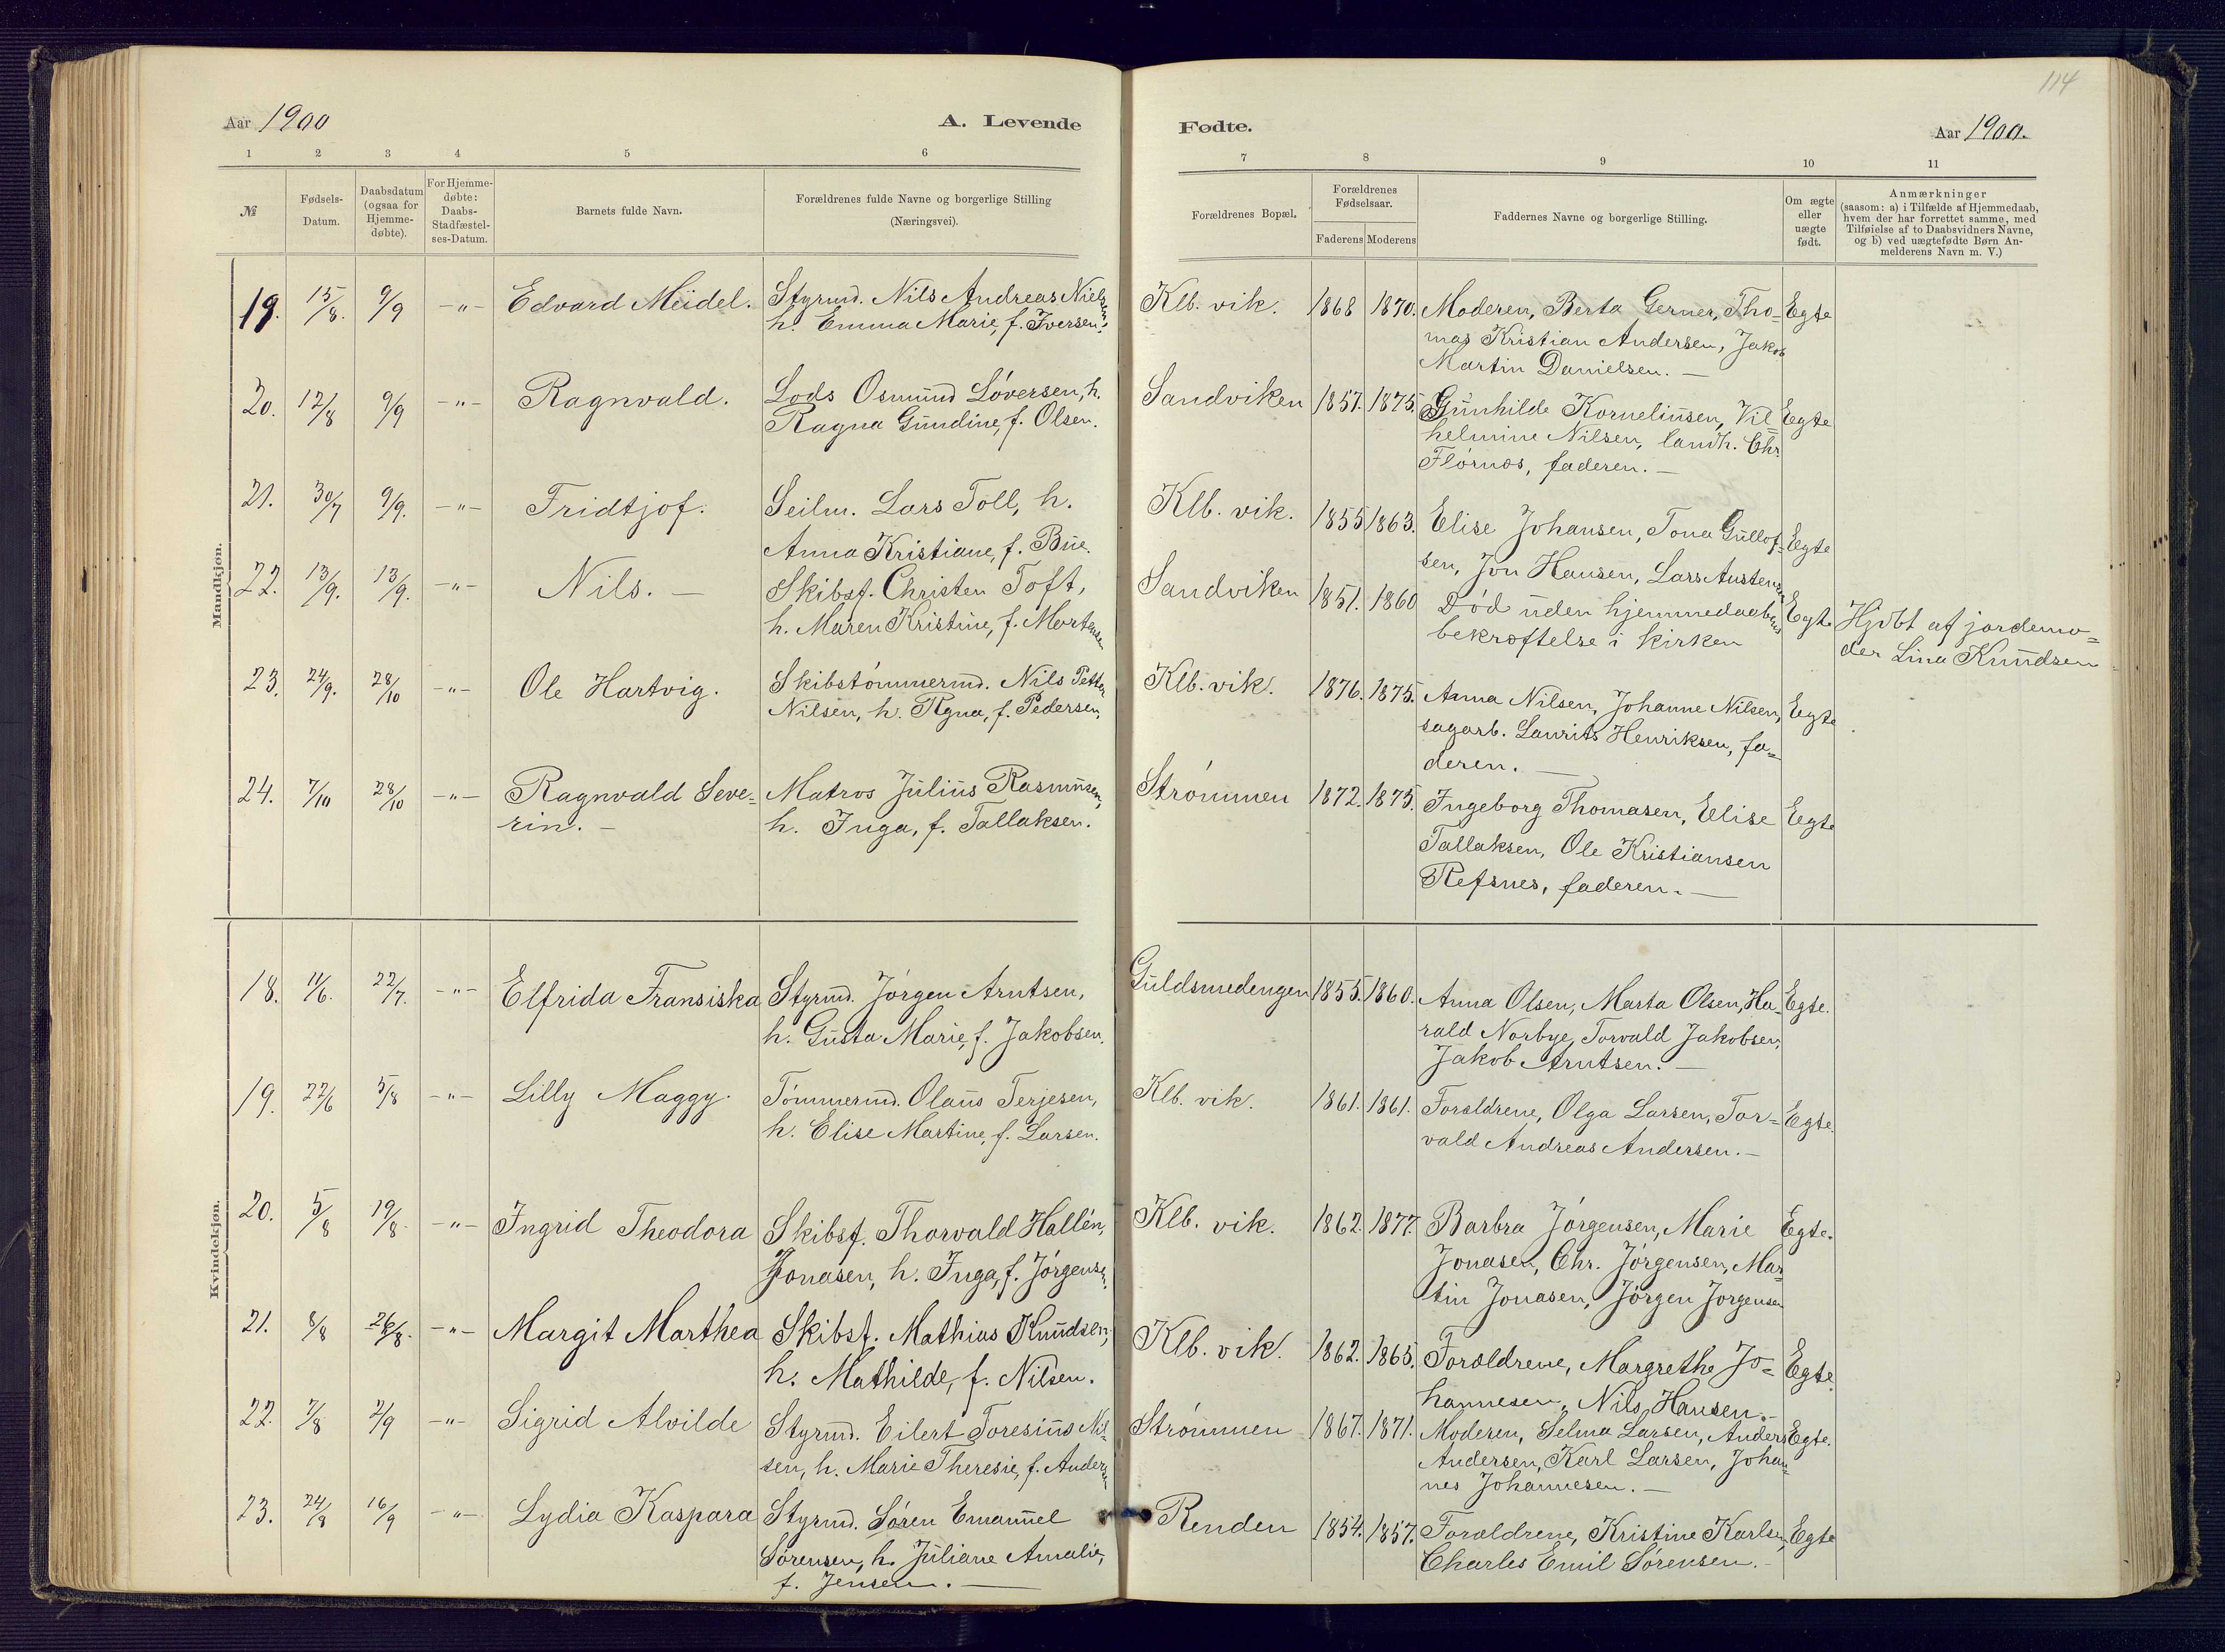 114
Aar 1900
A. Levende
Fødte.
Aar 1900.
1 2 3 4 5 6 7 8 9 10 11
№
Fødsels-
Datum.
Daabsdatum
(ogsaa for
Hjemme-
døbte).
For Hjemme-
døbte:
Daabs-
Stadfæstel-
ses-Datum.
Barnets fulde Navn.
Forældrenes fulde Navne og borgerlige Stilling
(Næringsvei).
Forældrenes Bopæl.
Forældrenes
Fødselsaar.
Faderens Moderens
Faddernes Navne og borgerlige Stilling.
Om ægte
eller
uægte
født.
Anmærkninger
(saasom: a) i Tilfælde af Hjemmedaab,
hvem der har forrettet samme, med
Tilføielse af to Daabsvidners Navne,
og b) ved uægtefødte Børn An-
melderens Navn m. V.)
Mandkjøn.
19. 15/8. 9/9 -"- Edvard Meidel. Styrmd. Nils Andreas Nielsen,
h. Emma Marie, f. Iversen.
Klb. vik. 1868 1870. Moderen, Berta Gerner, Tho= Egte
mas Kristian Andersen, Jakob
Martin Danielsen. —
20. 12/8 9/9 -"- Ragnvald. Lods Osmund Løversen, h.
Ragna Gundine, f. Olsen.
Sandviken 1857. 1875. Gunhilde Korneliusen, Vil= Egte
helmine Nilsen, landh. Chr.
Flørnæs, faderen. —
21. 30/7 9/9. -"- Fridtjof. Seilm. Lars Toll, h.
Anna Kristiane, f. Bue.
Klb. vik. 1855 1863. Elise Johansen, Tona Gullof= Egte
sen, Jon Hansen, Lars Austensen
22. 13/9. 13/9. -"- Nils. — Skibsf. Christen Toft,
h. Maren Kristine, f. Mortensen
Sandviken 1851. 1860 Død uden hjemmedaabens Egte
bekræftelse i kirken
Hjdbt af jordemo=
der Lina Knudsen
23. 24/9. 28/10 -"- Ole Hartvig. Skibstømmermd. Nils Petter
Nilsen, h. Agna, f. Pedersen,
Klb. vik. 1876. 1875. Anna Nilsen, Johanne Nilsen, Egte
sagarb. Laurits Henriksen, fa=
deren. —
24. 7/10 28/10 -"- Ragnvald Seve-
rin. —
Matros Julius Rasmusen,
h. Inga, f. Tallaksen.
Strømmen 1872. 1875. Ingeborg Thomasen, Elise Egte
Tallaksen, Ole Kristiansen
Refsnes, faderen. —
Kvindekjøn.
18. 11/6. 22/7. -"- Elfrida Fransiska Styrmd. Jørgen Arntsen,
h. Gusta Marie, f. Jakobsen.
Guldsmedengen 1855. 1860. Anna Olsen, Marta Olsen, Ha- Egte.
rald Norbye, Torvald Jakobsen,
Jakob Arntsen. —
19. 22/6 5/8 -"- Lilly Maggy. Tømmermd. Olaus Terjesen,
h. Elise Martine, f. Larsen.
Klb. vik. 1861. 1861. Forældrene, Olga Larsen, Tor= Egte.
vald Andreas Andersen. —
20. 5/8 19/8. -"- Ingrid Theodora Skibsf. Thorvald Hallén,
Jonasen, h. Inga, f. Jørgensen.
Klb. vik. 1862. 1877. Barbra Jørgensen, Marie Egte.
Jonasen, Chr. Jørgensen, Mar=
tin Jonasen, Jørgen Jørgensen
21. 8/8 26/8. -"- Margit Marthea Skibsf. Mathias Knudsen,
h. Mathilde, f. Nilsen.
Klb. vik. 1862. 1865. Forældrene, Margrethe Jo= Egte.
hannesen, Nils Hansen. —
22. 7/8 2/9 -"- Sigrid Alvilde Styrmd. Eilert Toresius Nil=
sen, h. Marie Theresie, f. Andersen
Strømmen 1867. 1871. Moderen, Selma Larsen, Anders Egte.
Andersen, Karl Larsen, Johan=
nes Johannesen. —
23. 24/8 16/9 -"- Lydia Kaspara Styrmd. Søren Emanuel
Sørensen, h. Juliane Amalie,
f. Jensen. —
Renden 1854. 1857. Forældrene, Kristine Karlsen, Egte
Charles Emil Sørensen. —